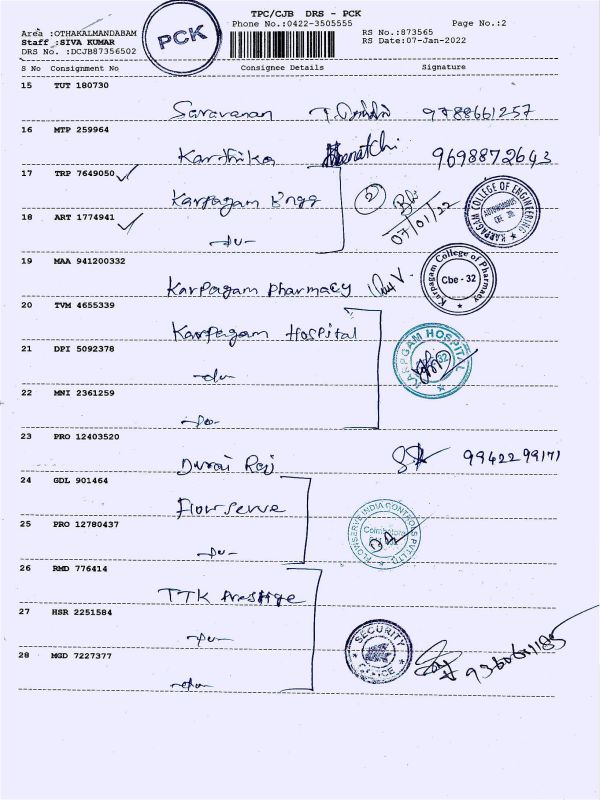 TPC/CJB DRS - PCK
Area :OTHAKALMANDABAM
Phone No.:0422-3505555
Page No.:2
Staff :SIVA KUMAR
RS No.:873565
DRS No. :DCJB87356502
RS Date:07-Jan-2022
PCK
S No Consignment No Consignee Details Signature
15 TUT 180730
Saravanan 9788661257
16 MTP 259964
Karthika 9698872643
17 TRP 7649050
Karpagam Engg 2 07/01/22
KARPAGAM COLLEGE OF ENGINEERING
AUTONOMOUS
CBE 32
18 ART 1774941
-du-
19 MAA 941200332
Karpagam Pharmacy
Karpagam College of Pharmacy
Cbe - 32
20 TVM 4655339
Karpagam Hospital
KARPAGAM HOSPITAL
32
21 DPI 5092378
-du-
22 MNI 2361259
-do-
23 PRO 12403520
Durai Raj 9942299171
24 GDL 901464
Flowserve
FLOWSERVE INDIA CONTROLS PVT LTD
Coimbatore
25 PRO 12780437
-du-
26 RMD 776414
TTK Prestige
27 HSR 2251584
-du-
SECURITY
OFFICE
28 MGD 7227377
-du-